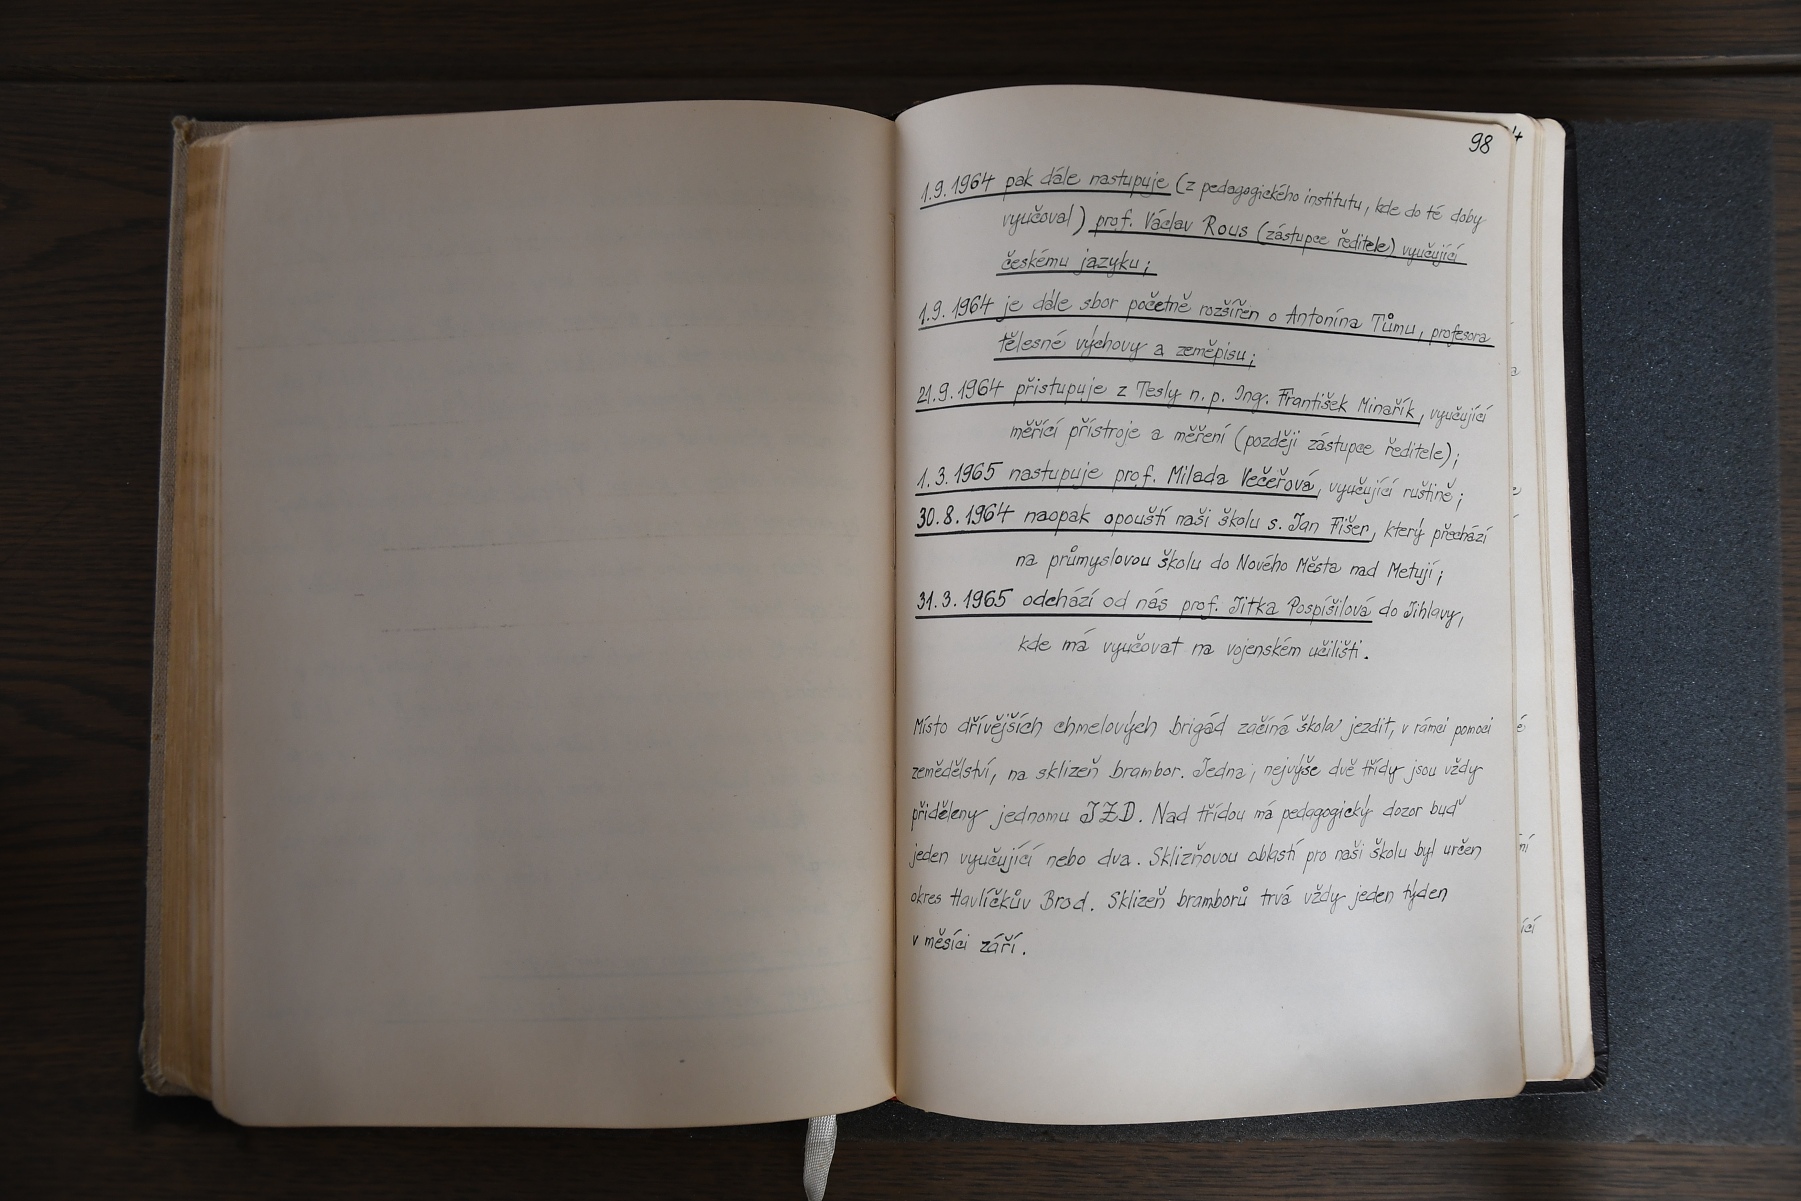 98
1.9.1964 pak dále nastupuje (z pedagogického institutu, kde do té doby
vyučoval) prof. Václav Rous (zástupce ředitele) vyučující
českému jazyku;
1.9.1964 je dále sbor početně rozšířen o Antonína Tůmu, profesora
tělesné výchovy a zeměpisu;
21.9.1964 přistupuje z Tesly n.p. Ing. František Minařík, vyučující
měřící přístroje a měření (později zástupce ředitele);
1.3.1965 nastupuje prof. Milada Večeřová, vyučující ruštině;
30.8.1964 naopak opouští naši školu s. Jan Fišer, který přechází
na průmyslovou školu do Nového Města nad Metují;
31.3.1965 odchází od nás prof. Jitka Pospíšilová do Jihlavy,
kde má vyučovat na vojenském učilišti.
Místo dřívějších chmelových brigád začíná škola jezdit, v rámci pomoci
zemědělství, na sklizeň brambor. Jedna, nejvýše dvě třídy jsou vždy
přiděleny jednomu JZD. Nad třídou má pedagogický dozor buď
jeden vyučující nebo dva. Sklizňovou oblastí pro naši školu byl určen
okres Havlíčkův Brod. Sklizeň bramborů trvá vždy jeden týden
v měsíci září.